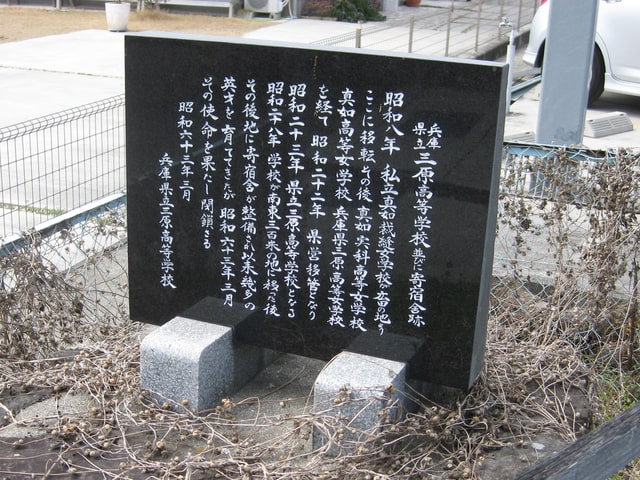 兵庫県立三原高等学校並びに寄宿舎跡
昭和八年 私立真如裁縫学校一番の地より
ここに移転その後 真如実科高等女学校
真如高等女学校 兵庫県三原高等女学校
を経て 昭和二十二年 県営移管となり
昭和二十三年 県立三原高等学校となる
昭和二十八年 学校が南東三百米の地に移った後
その後地に寄宿舎が整備され以来幾多の
英才を育ててきたが 昭和六十三年三月
その使命を果たし閉鎖さる
昭和六十三年三月
兵庫県立三原高等学校